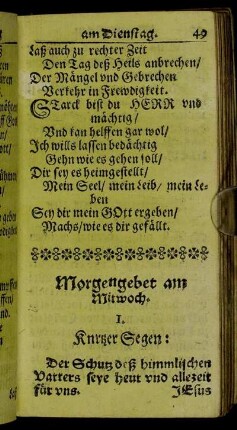 am Dienstag. 49
Laß auch zu rechter Zeit
Den Tag deß Heils anbrechen/
Der Mängel vnd Gebrechen
Verkehr in Frewdigkeit.
STarck bist du HERR vnd
mächtig/
Vnd kan helffen gar wol/
Ich wills lassen bedächtig
Gehn wie es gehen soll/
Dir sey es heimgestellt/
Mein Seel/ mein Leib/ mein Le-
ben
Sey dir mein GOtt ergeben/
Machs/ wie es dir gefällt.
Morgengebet am
Mitwoch.
I.
Kurtzer Segen:
Der Schutz deß himmlischen
Vatters seye heut vnd allezeit
für vns. JEsus